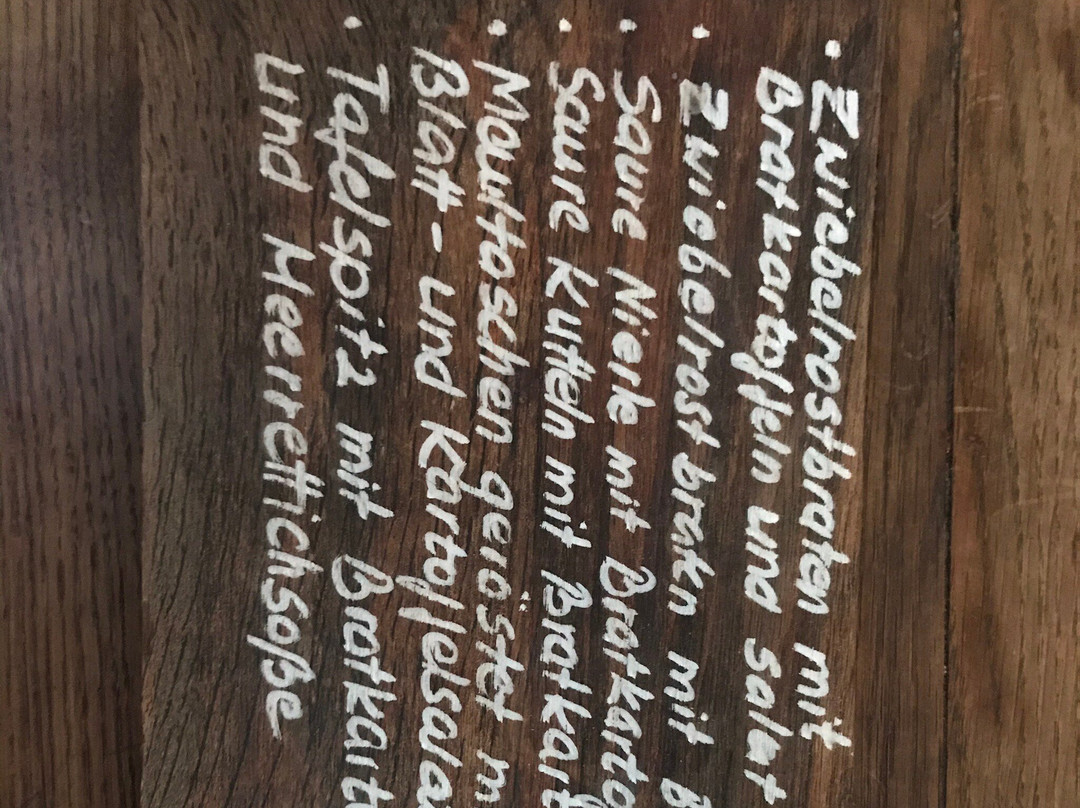 • Zwiebelrostbraten mit
Bratkartoffeln und salat
• Zwiebelrostbratn mit B
• Saure Niere mit Bratkarto
• Saure Kutteln mit Bratkart
• Maultaschen geröstet m
Blatt- und Kartoffelsala
• Tafelspitz mit Bratkart
und Meerrettichsoße